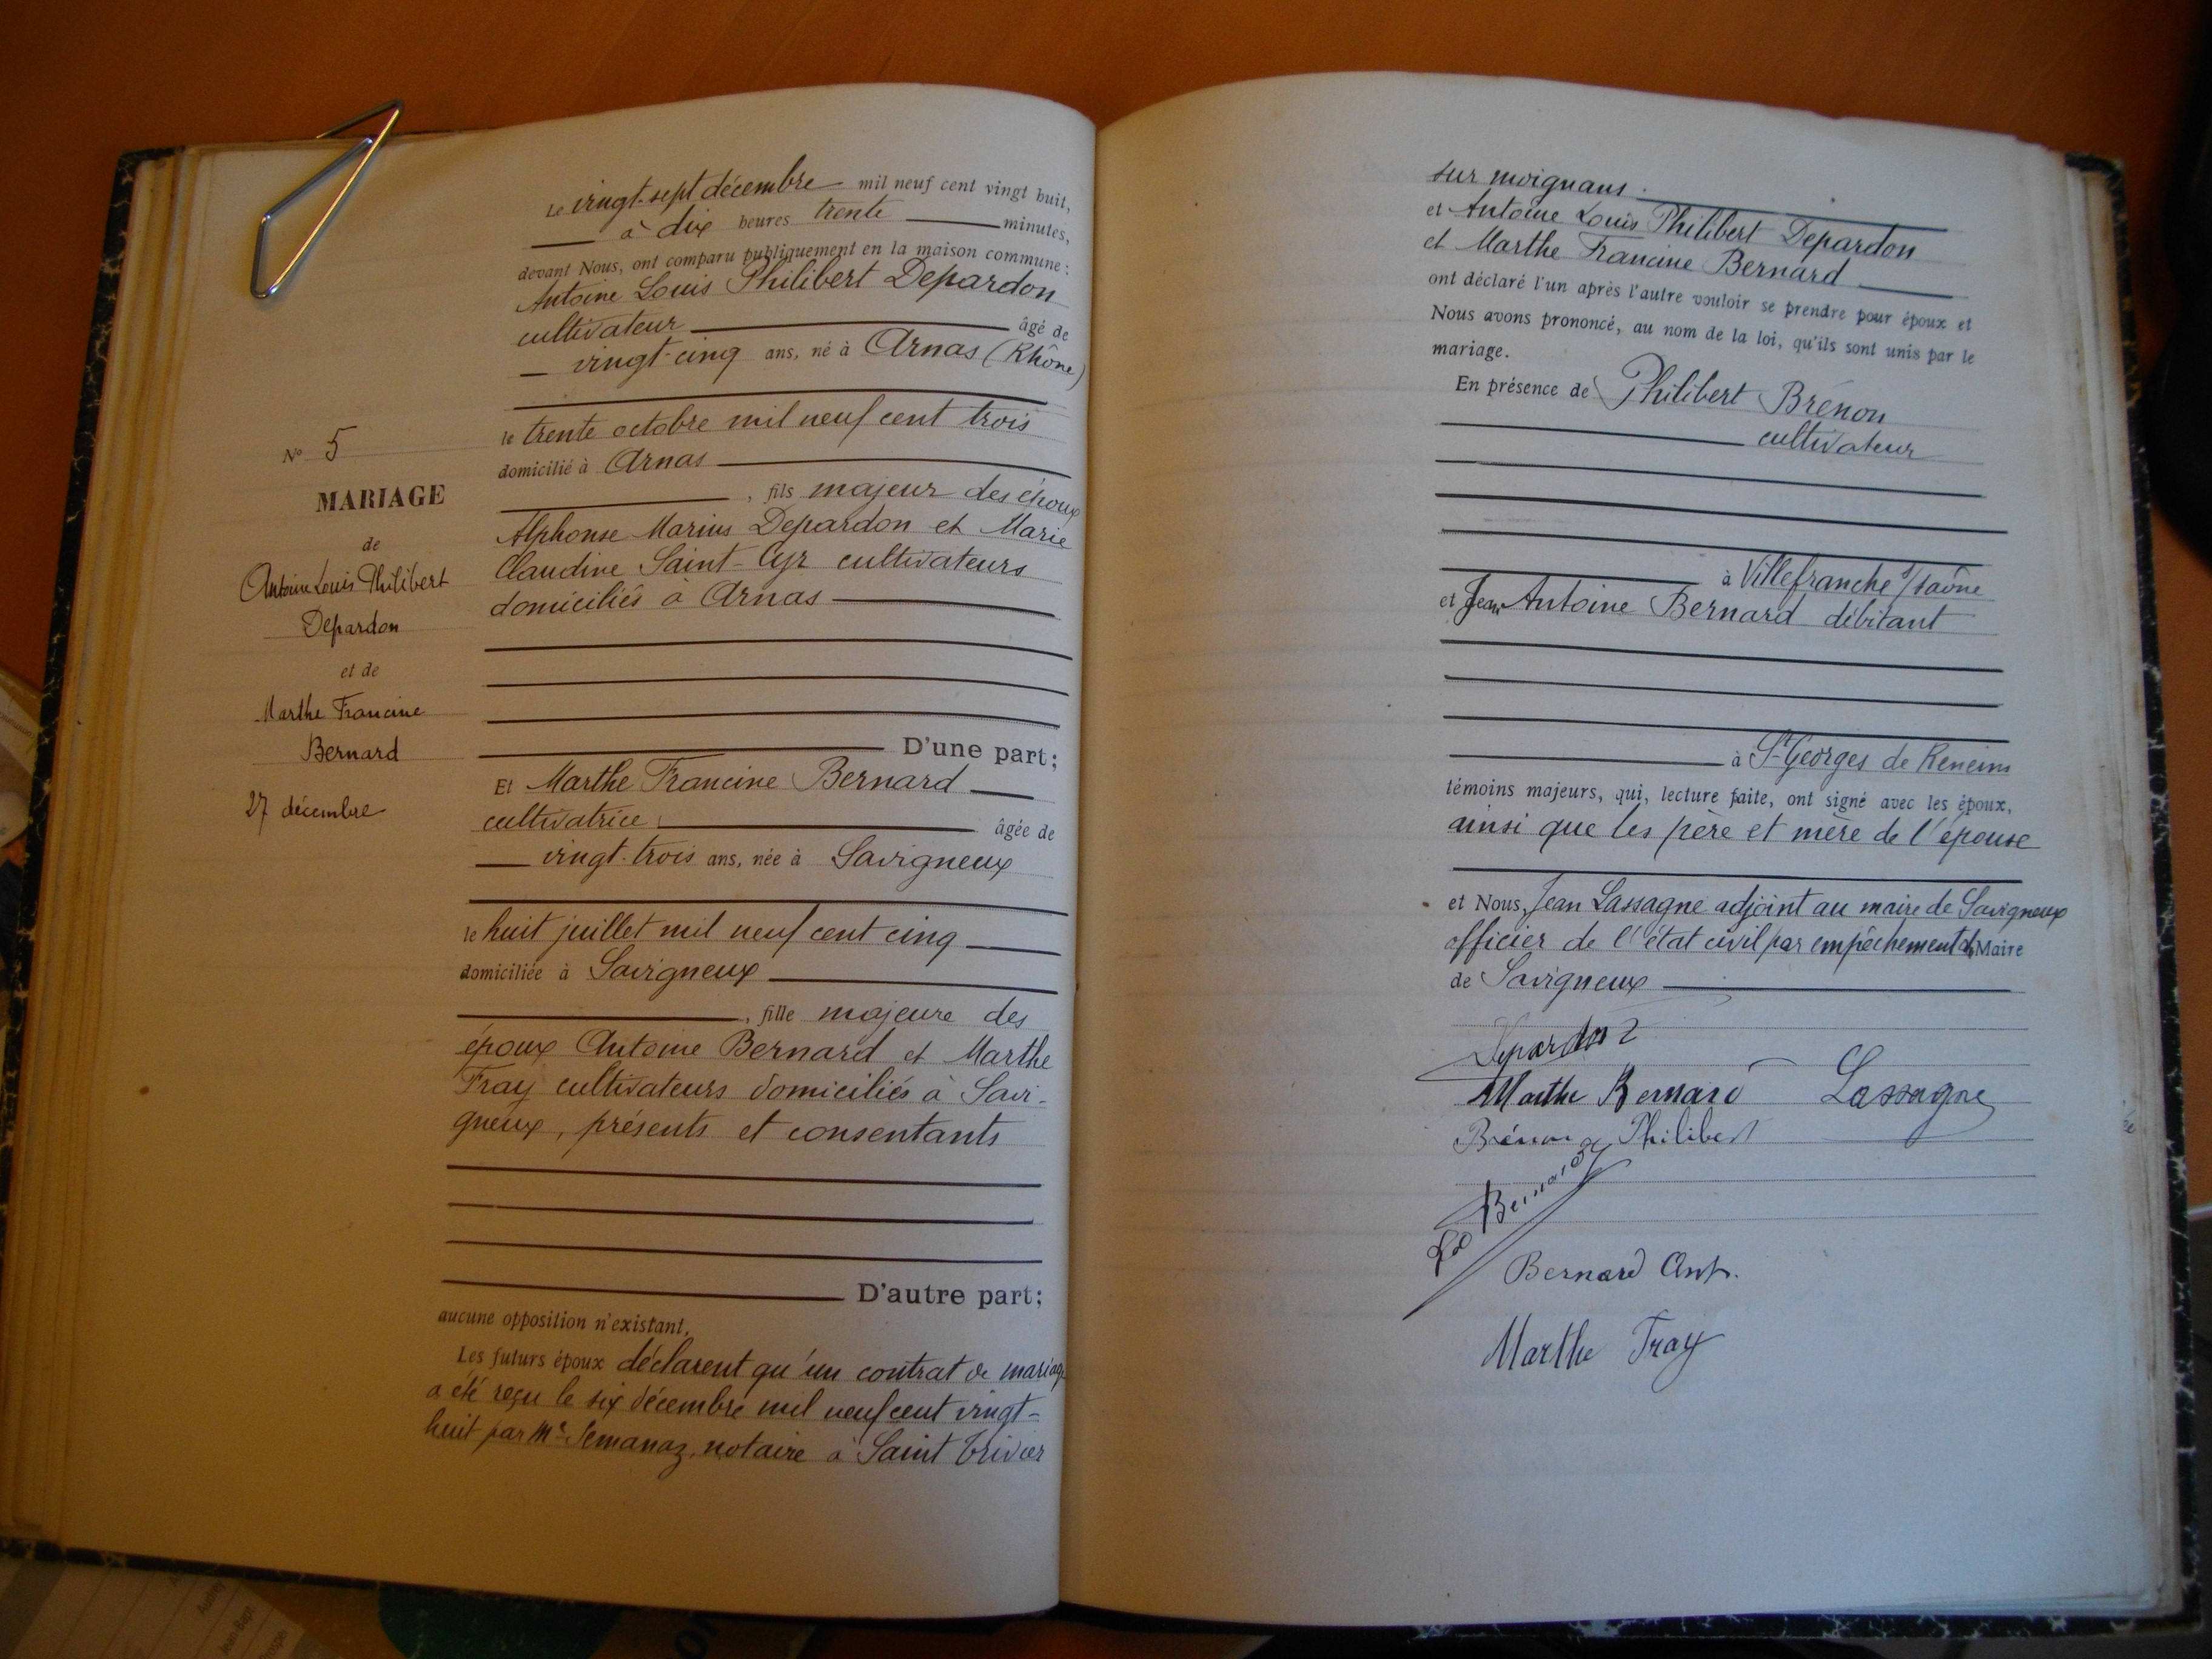 N° 5
MARIAGE
de
Antoine Louis Philibert
Depardon
et de
Marthe Francine
Bernard
27 décembre
Le vingt-sept décembre mil neuf cent vingt huit,
à dix heures trente minutes,
devant Nous, ont comparu publiquement en la maison commune :
Antoine Louis Philibert Depardon
cultivateur âgé de
vingt-cinq ans, né à Arnas (Rhône)
le trente octobre mil neuf cent trois
domicilié à Arnas
, fils majeur des époux
Alphonse Marius Depardon et Marie
Claudine Saint-Cyr cultivateurs
domiciliés à Arnas
D'une part ;
Et Marthe Francine Bernard
cultivatrice âgée de
vingt-trois ans, née à Savigneux
le huit juillet mil neuf cent cinq
domiciliée à Savigneux
, fille majeure des
époux Antoine Bernard et Marthe
Fray cultivateurs domiciliés à Savi-
gneux, présents et consentants
D'autre part ;
aucune opposition n'existant.
Les futurs époux déclarent qu'un contrat de mariage
a été reçu le six décembre mil neuf cent vingt-
huit par Me Semanaz, notaire à Saint Trivier
sur moignans.
et Antoine Louis Philibert Depardon
et Marthe Francine Bernard
ont déclaré l'un après l'autre vouloir se prendre pour époux et
Nous avons prononcé, au nom de la loi, qu'ils sont unis par le
mariage.
En présence de Philibert Brénon
cultivateur
à Villefranche s/Saône
et Jean Antoine Bernard débitant
à St Georges de Reneins
témoins majeurs, qui, lecture faite, ont signé avec les époux,
ainsi que les père et mère de l'épouse
et Nous, Jean Lassagne adjoint au maire de Savigneux
officier de l'état civil par empêchement du Maire
de Savigneux
Depardon
Marthe Bernard Lassagne
Brénon Philibert
Bernard
Bernard Ant.
Marthe Fray